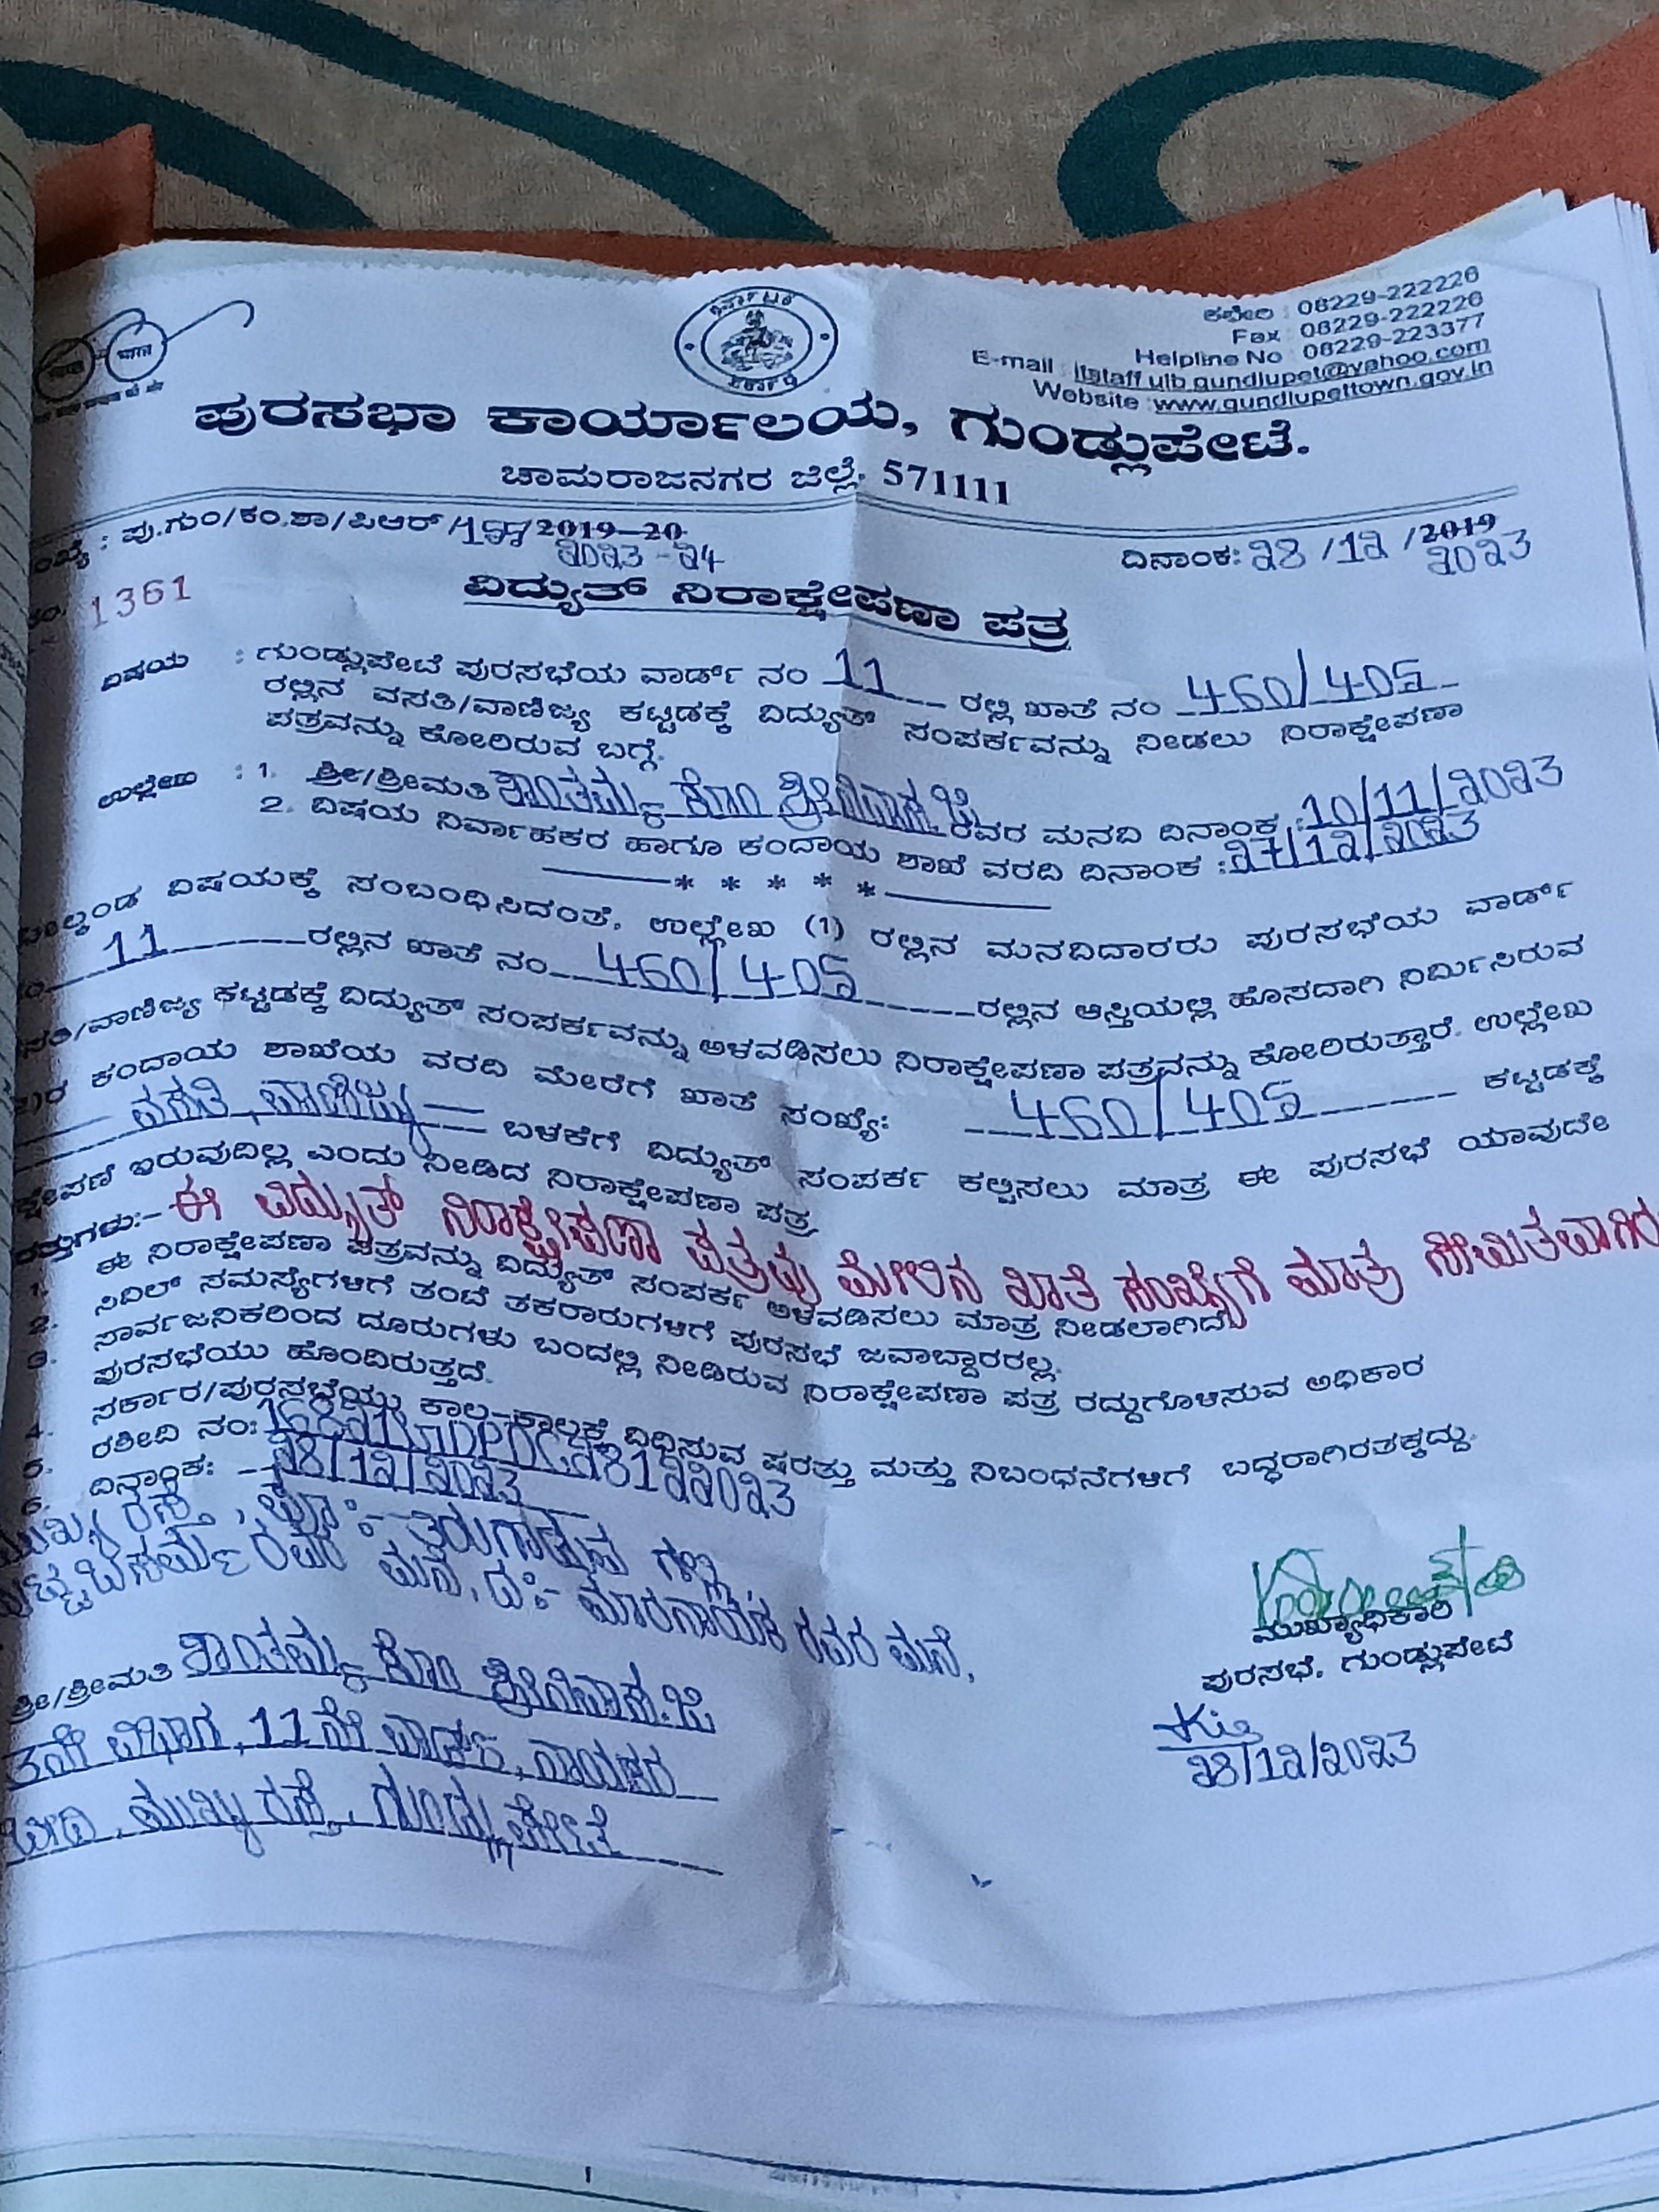 ಕಛೇರಿ : 08229-222226
Fax : 08229-222226
Helpline No : 08229-223377
E-mail : itstaff_ulb_gundlupet@yahoo.com
Website : www.gundlupettown.gov.in
ಪುರಸಭಾ ಕಾರ್ಯಾಲಯ, ಗುಂಡ್ಲುಪೇಟೆ.
ಚಾಮರಾಜನಗರ ಜಿಲ್ಲೆ. 571111
ಪು.ಗುಂ/ಕಂ.ಶಾ/ಪಿಆರ್/ 2019-20
2023-24
ದಿನಾಂಕ: 28/12/2019
2023
1361
ವಿದ್ಯುತ್ ನಿರಾಕ್ಷೇಪಣಾ ಪತ್ರ
ವಿಷಯ : ಗುಂಡ್ಲುಪೇಟೆ ಪುರಸಭೆಯ ವಾರ್ಡ್ ನಂ 11 ರಲ್ಲಿ ಖಾತೆ ನಂ 460/405
ರಲ್ಲಿನ ವಸತಿ/ವಾಣಿಜ್ಯ ಕಟ್ಟಡಕ್ಕೆ ವಿದ್ಯುತ್ ಸಂಪರ್ಕವನ್ನು ನೀಡಲು ನಿರಾಕ್ಷೇಪಣಾ
ಪತ್ರವನ್ನು ಕೋರಿರುವ ಬಗ್ಗೆ.
ಉಲ್ಲೇಖ : 1. ಶ್ರೀ/ಶ್ರೀಮತಿ ಶಾಂತಮ್ಮ ಕೋಂ ಶ್ರೀನಿವಾಸ.ಜಿ ರವರ ಮನವಿ ದಿನಾಂಕ : 10/11/2023
2. ವಿಷಯ ನಿರ್ವಾಹಕರ ಹಾಗೂ ಕಂದಾಯ ಶಾಖೆ ವರದಿ ದಿನಾಂಕ : 27/12/2023
* * * * *
ವಿಷಯಕ್ಕೆ ಸಂಬಂಧಿಸಿದಂತೆ, ಉಲ್ಲೇಖ (1) ರಲ್ಲಿನ ಮನವಿದಾರರು ಪುರಸಭೆಯ ವಾರ್ಡ್
11 ರಲ್ಲಿನ ಖಾತೆ ನಂ 460/405 ರಲ್ಲಿನ ಆಸ್ತಿಯಲ್ಲಿ ಹೊಸದಾಗಿ ನಿರ್ಮಿಸಿರುವ
ಸತಿ/ವಾಣಿಜ್ಯ ಕಟ್ಟಡಕ್ಕೆ ವಿದ್ಯುತ್ ಸಂಪರ್ಕವನ್ನು ಅಳವಡಿಸಲು ನಿರಾಕ್ಷೇಪಣಾ ಪತ್ರವನ್ನು ಕೋರಿರುತ್ತಾರೆ. ಉಲ್ಲೇಖ
ಕಂದಾಯ ಶಾಖೆಯ ವರದಿ ಮೇರೆಗೆ ಖಾತೆ ಸಂಖ್ಯೆ: 460/405 ಕಟ್ಟಡಕ್ಕೆ
ವಸತಿ, ವಾಣಿಜ್ಯ ಬಳಕೆಗೆ ವಿದ್ಯುತ್ ಸಂಪರ್ಕ ಕಲ್ಪಿಸಲು ಮಾತ್ರ ಈ ಪುರಸಭೆ ಯಾವುದೇ
ಕ್ಷೇಪಣೆ ಇರುವುದಿಲ್ಲ ಎಂದು ನೀಡಿದ ನಿರಾಕ್ಷೇಪಣಾ ಪತ್ರ
ರತ್ತುಗಳು:- ಈ ವಿದ್ಯುತ್ ನಿರಾಕ್ಷೇಪಣಾ ಪತ್ರವು ಮೇಲಿನ ಖಾತೆ ಸಂಖ್ಯೆಗೆ ಮಾತ್ರ ಸೀಮಿತವಾಗಿರ
1. ಈ ನಿರಾಕ್ಷೇಪಣಾ ಪತ್ರವನ್ನು ವಿದ್ಯುತ್ ಸಂಪರ್ಕ ಅಳವಡಿಸಲು ಮಾತ್ರ ನೀಡಲಾಗಿದೆ
2. ಸಿವಿಲ್ ಸಮಸ್ಯೆಗಳಿಗೆ ತಂಟೆ ತಕರಾರುಗಳಿಗೆ ಪುರಸಭೆ ಜವಾಬ್ದಾರರಲ್ಲ.
3. ಸಾರ್ವಜನಿಕರಿಂದ ದೂರುಗಳು ಬಂದಲ್ಲಿ ನೀಡಿರುವ ನಿರಾಕ್ಷೇಪಣಾ ಪತ್ರ ರದ್ದುಗೊಳಿಸುವ ಅಧಿಕಾರ
ಪುರಸಭೆಯು ಹೊಂದಿರುತ್ತದೆ.
4. ಸರ್ಕಾರ/ಪುರಸಭೆಯು ಕಾಲ-ಕಾಲಕ್ಕೆ ವಿಧಿಸುವ ಷರತ್ತು ಮತ್ತು ನಿಬಂಧನೆಗಳಿಗೆ ಬದ್ಧರಾಗಿರತಕ್ಕದ್ದು.
5. ರಶೀದಿ ನಂ:
6. ದಿನಾಂಕ: 28/12/2023
ಮುಖ್ಯ ರಸ್ತೆ, ಗಲ್ಲಿ,
ರವರ ಮನೆ, ದ:- ಮಾರನಾಯಕ ರವರ ಮನೆ,
ಶ್ರೀ/ಶ್ರೀಮತಿ ಶಾಂತಮ್ಮ ಕೋಂ ಶ್ರೀನಿವಾಸ.ಜಿ
3ನೇ ವಿಭಾಗ, 11ನೇ ವಾರ್ಡ್, ನಾಯಕರ
ಬೀದಿ, ಮುಖ್ಯ ರಸ್ತೆ, ಗುಂಡ್ಲುಪೇಟೆ
ಮುಖ್ಯಾಧಿಕಾರಿ
ಪುರಸಭೆ, ಗುಂಡ್ಲುಪೇಟೆ
28/12/2023